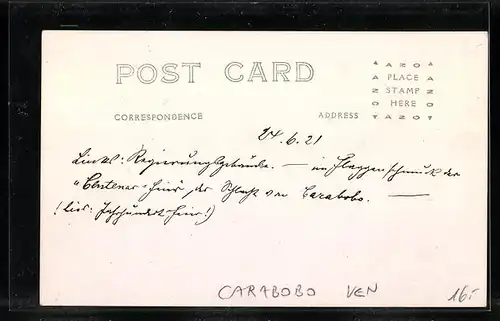 POST CARD
CORRESPONDENCE
ADDRESS
AZO
PLACE
STAMP
HERE
AZO
24.6.21
Links: Regierungsgebäude. — im Flaggenschmuck der
"Centenar-Feier" der Schlacht von Carabobo. —
(lies: Jahrhundert-Feier!)
CARABOBO VEN
16.-